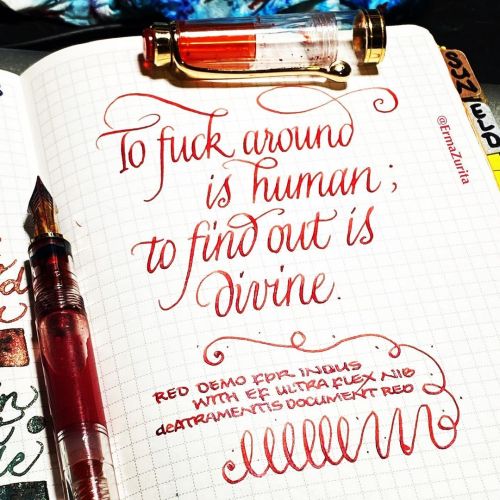 To fuck around
is human;
to find out is
divine.
RED DEMO FOR INDUS
WITH EF ULTRA FLEX NIB
deATRAMENTIS DOCUMENT RED
@ErmaZurita